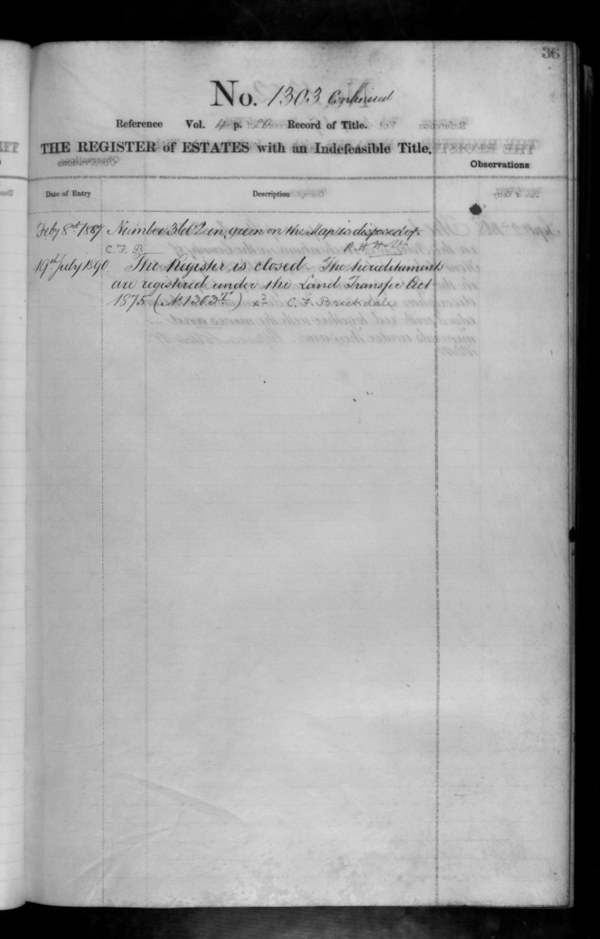 36
No. 1303 Continued
Reference Vol. 4 p. Record of Title.
THE REGISTER of ESTATES with an Indefeasible Title.
Observations
Date of Entry Description
Feby 8th 1887 Number 3602 in green on the Map is disposed of.
C. F. B.
19th July 1890 The Register is closed. The hereditaments
are registered under the Land Transfer Act
1875 (N. 1303) C. F. Brickdale